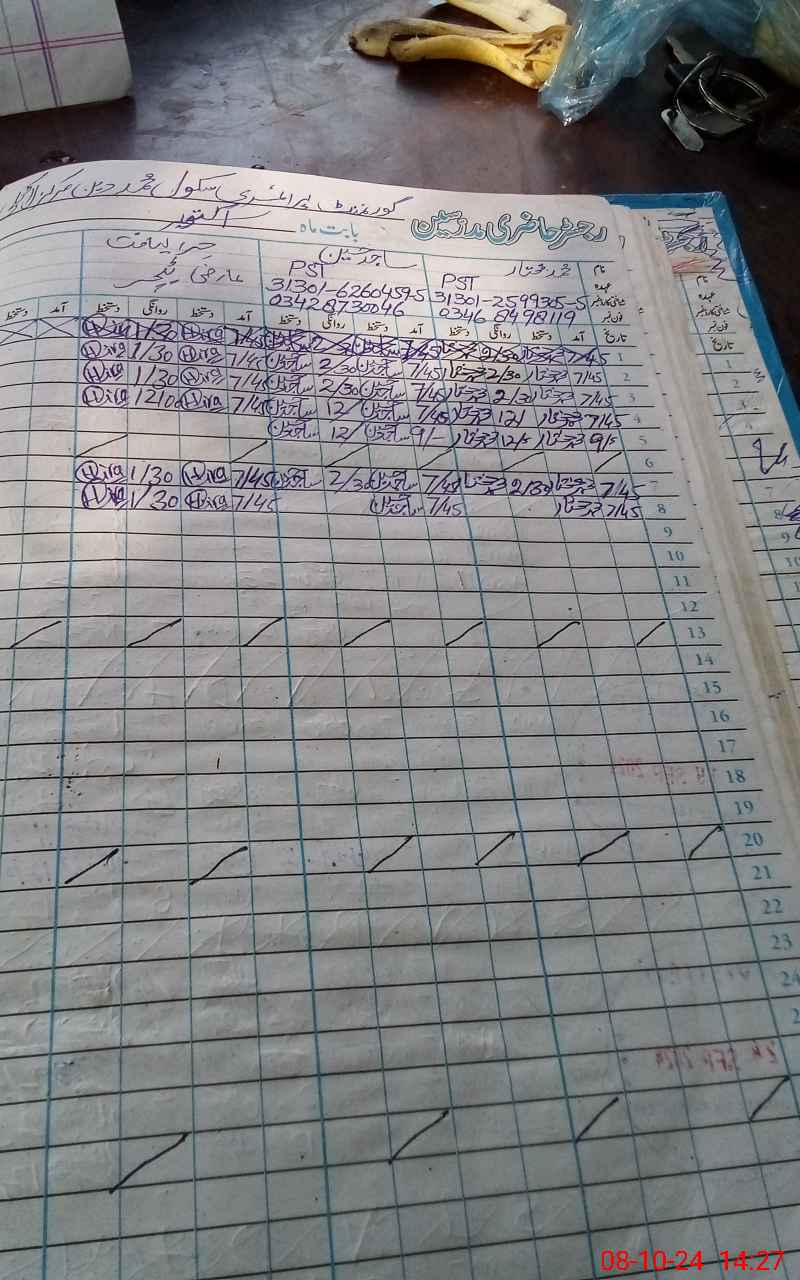 گورنمنٹ پرائمری سکول محمد حسین
رجسٹر حاضری مدرسین بابت ماہ اکتوبر
نام محمد مختار ساجد حسین حرا لیاقت
عہدہ PST PST عارضی ٹیچر
31301-2599305-5 31301-6260459-5
فون نمبر 0346 8498119 03428730046
تاریخ آمد دستخط روانگی دستخط آمد دستخط روانگی دستخط آمد دستخط روانگی دستخط آمد دستخط
1 7/45 محمد مختار 2/30 محمد مختار 7/45 ساجد حسین 2/30 ساجد حسین 7/45 Hira 1/30 Hira
2 7/45 محمد مختار 2/30 محمد مختار 7/45 ساجد حسین 2/30 ساجد حسین 7/45 Hira 1/30 Hira
3 7/45 محمد مختار 2/30 محمد مختار 7/45 ساجد حسین 2/30 ساجد حسین 7/45 Hira 1/30 Hira
4 7/45 محمد مختار 12/ محمد مختار 7/45 ساجد حسین 12/ ساجد حسین 7/45 Hira 1210 Hira
5 9/- محمد مختار 12/- محمد مختار 9/- ساجد حسین 12/ ساجد حسین
6
7 7/45 محمد مختار 2/30 محمد مختار 7/45 ساجد حسین 2/30 ساجد حسین 7/45 Hira 1/30 Hira
8 7/45 محمد مختار 7/45 ساجد حسین 7/45 Hira 1/30 Hira
9
10
11
12
13
14
15
16
17
18
19
20
21
22
23
24
08-10-24 14:27